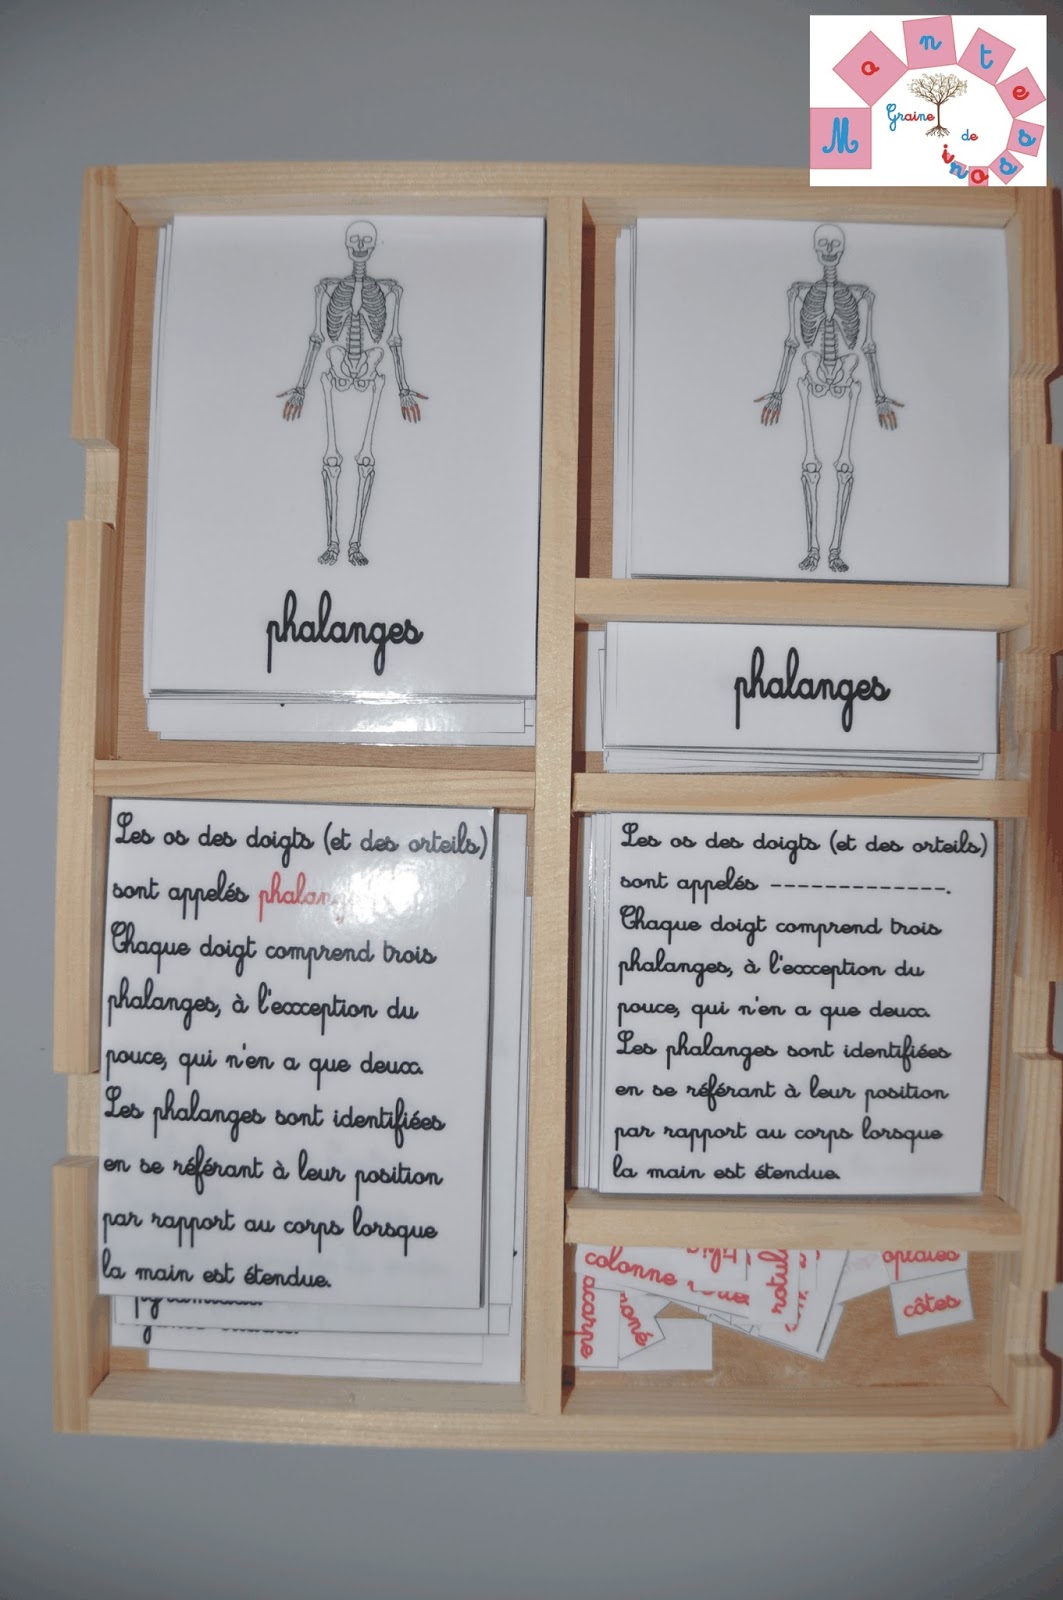 Graine
de
Montessinos
phalanges
phalanges
Les os des doigts (et des orteils)
sont appelés
Chaque doigt comprend trois
phalanges, à l'exception du
pouce, qui n'en a que deux.
Les phalanges sont identifiées
en se référant à leur position
par rapport au corps lorsque
la main est étendue.
Les os des doigts (et des orteils)
sont appelés -------------.
Chaque doigt comprend trois
phalanges, à l'exception du
pouce, qui n'en a que deux.
Les phalanges sont identifiées
en se référant à leur position
par rapport au corps lorsque
la main est étendue.
colonne
côtes